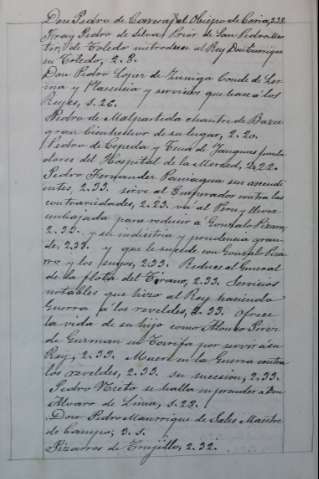 Don Pedro de Carvajal Obispo de Coria, 2.38.
Fray Pedro de Silva Prior de San Pedro
de Toledo introduce al Rey Don Enrique
en Toledo, 2. 8.
Don Pedro Lopez de Zuniga Conde de
y Plasencia y servicios que hace á los
Reyes, 2. 26.
Pedro de Malpartida chantre de Baeza
gran bienhechor de su lugar, 2. 20.
Pedro de Cepeda y Tina de Yangues funda
dores del Hospital de la Merced, 2.22.
Pedro Fernandez Paniagua sus ascendi
entes, 2. 33. sirve al Emperador contra las
contrariedades, 2. 23. va al Peru y lleva
embajada para reducir a Gonzalo Pizarro,
2. 33. y su industria y prudencia gran-
de, 2.33. y que le sucede con Gonzalo Piza
rro y los suyos, 2.33. Reduce al General
de la flota del Tirano, 2. 33. Servicios
notables que hizo al Rey haciendo
Guerra á los reveldes, 2. 33. Ofrece
la vida de su hijo como Alonso Perez
de Guzman en Tarifa por servir á su
Rey, 2. 33. Muere en la Guerra contra
los reveldes, 2. 33. su sucesion, 2. 33.
Pedro Nieto se halla en prender a Don
Alvaro de Luna, 2. 23.
Don Pedro Manrrique de Sales Maestre
de Campo, 2. 5.
Pizarros de Trujillo, 2. 32.